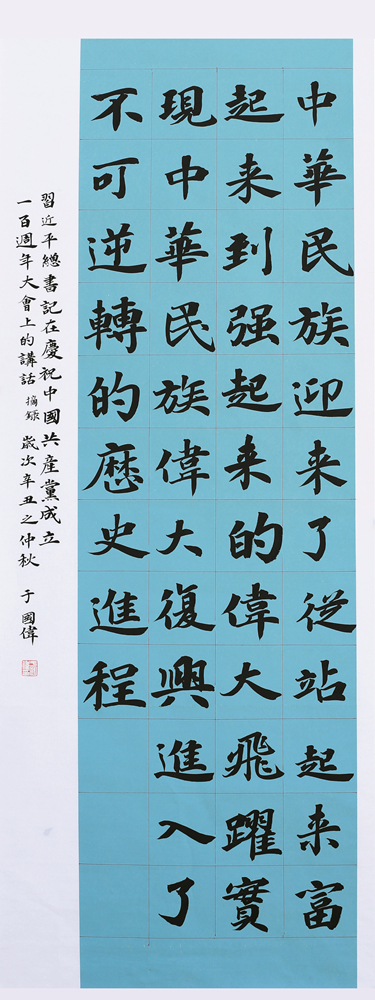 中華民族迎来了從站起来富
起来到强起来的偉大飛躍實
現中華民族偉大復興進入了
不可逆轉的歷史進程
習近平總書記在慶祝中國共産黨成立
一百週年大會上的講話 摘録 歲次辛丑之仲秋 于國偉